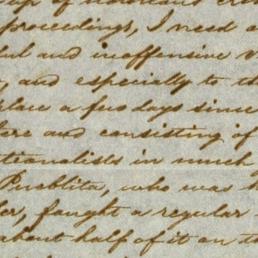 proceedings, I need
ful and inoffensive
and especially to th
place a few days since
ere and consisting of
tionalists in much
Pueblita, who was
er, fought a regular
about half of it on th